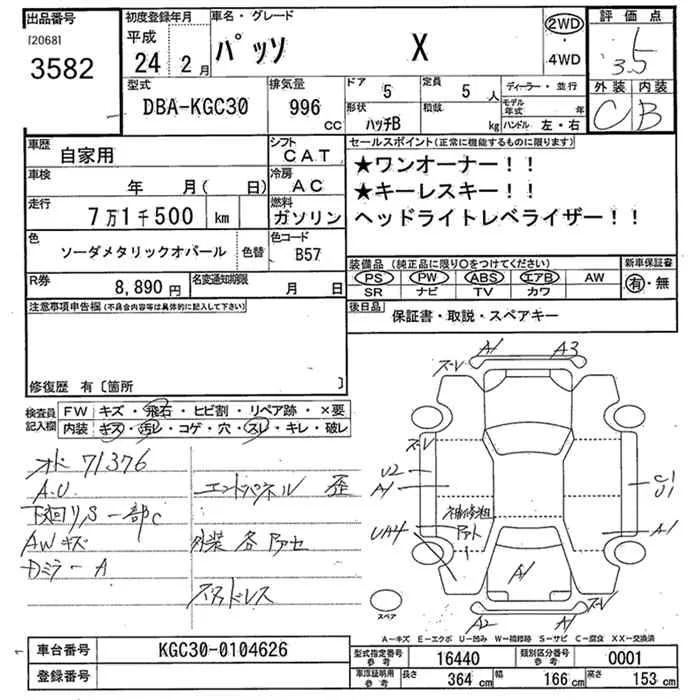 出品番号
[2068]
3582
初度登録年月
平成
24 2月
車名・グレード
パッソ X
2WD
・
4WD
評価点
3.5
外装 内装
C B
型式
DBA-KGC30
排気量
996
CC
ドア
5
定員
5 人
形状
ハッチB
積載
kg
ディーラー・並行
モデル年式 年
ハンドル 左・右
車歴
自家用
シフト
CAT
車検
年 月( 日)
冷房
AC
走行
7万1千500 km
燃料
ガソリン
色
ソーダメタリックオパール
色替
色コード
B57
R券
8,890円
名変通知期限
月 日
セールスポイント(正常に機能するものに限ります)
★ワンオーナー!!
★キーレスキー!!
ヘッドライトレベライザー!!
装備品(純正品に限り○をつけてください)
新車保証書
PS PW ABS エアB AW
SR ナビ TV カワ
有・無
後日品
保証書・取説・スペアキー
注意事項申告欄(不具合内容等は具体的に記入して下さい)
修復歴 有〔箇所 〕
検査員記入欄
FW キズ・飛石・ヒビ割・リペア跡・×要
内装 キズ・汚レ・コゲ・穴・スレ・キレ・破レ
オド 71376
A.U
下廻りS 一部C
AWキズ
Dミラー A
エンドパネル 歪
外装 各アセ
スタッドレス
A1 A3
ズーレ
ズーレ
U2
A1
UA4
補修粗
A1
C1
U1
A1
A2 A1
スペア
A-キズ E-エクボ U-凹み W-補修跡 S-サビ C-腐食 XX-交換済
車台番号
KGC30-0104626
登録番号
型式指定番号
参考
16440
類別区分番号
参考
0001
車庫証明用
参考
長さ 364 cm
幅 166 cm
高さ 153 cm